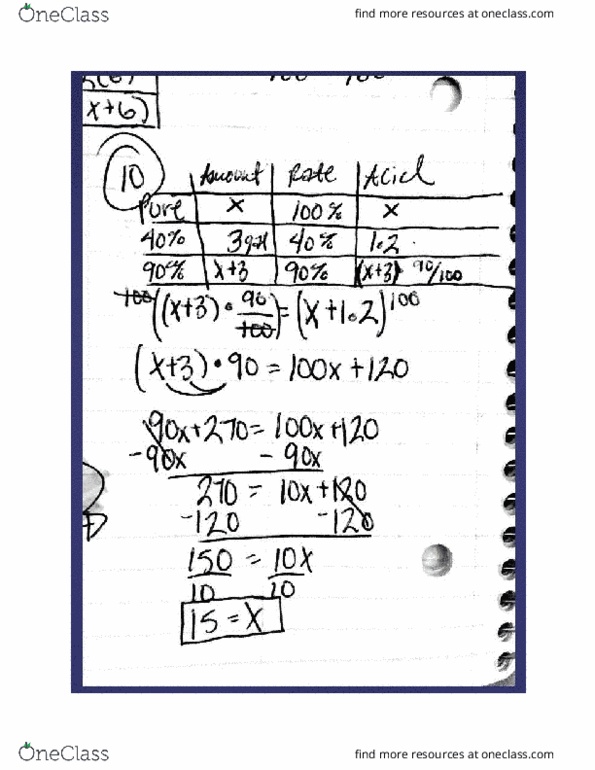 OneClass
find more resources at oneclass.com
x+6)
10
Amount Rate Acid
Pure x 100% x
40% 3gal 40% 1.2
90% x+3 90% (x+3) · 90/100
100((x+3) · 90/100) = (x+1.2)100
(x+3) · 90 = 100x+120
90x+270 = 100x+120
-90x -90x
270 = 10x+120
-120 -120
150 = 10x
10 10
15 = x
OneClass
find more resources at oneclass.com